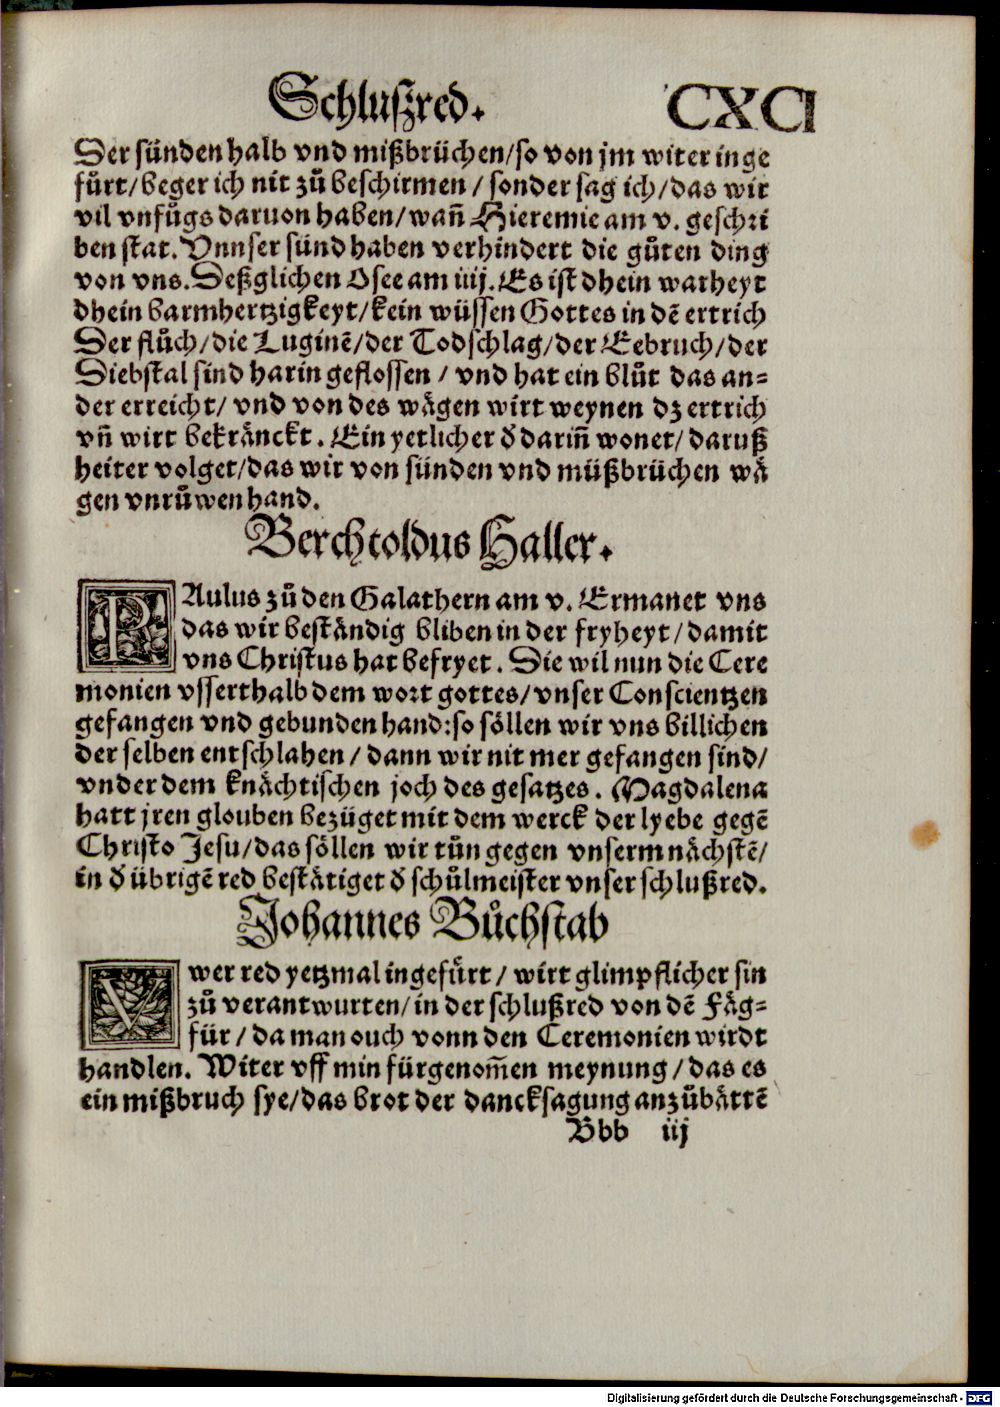 Schlußred.
CXCI
Der sünden halb vnd mißbrüchen/so von jm witer inge
fürt/beger ich nit zů beschirmen / sonder sag ich/das wir
vil vnfůgs daruon haben/wañ Hieremie am v. geschri
ben stat. Vnnser sünd haben verhindert die gůten ding
von vns. Deßglichen Osee am iiij. Es ist dhein warheyt
dhein barmhertzigkeyt/kein wüssen Gottes in dẽ ertrich
Der flůch/die Luginẽ/der Todschlag/der Eebruch/der
Diebstal sind harin geflossen / vnd hat ein blůt das an-
der erreicht/ vnd von des wägen wirt weynen dz ertrich
vñ wirt bekränckt. Ein yetlicher đ dariñ wonet/ daruß
heiter volget/das wir von sünden vnd müßbrüchen wä
gen vnrůwen hand.
Berchtoldus Haller.
PAulus zů den Galathern am v. Ermanet vns
das wir beständig bliben in der fryheyt/damit
vns Christus hat befryet. Die wil nun die Cere
monien vsserthalb dem wort gottes/vnser Conscientzen
gefangen vnd gebunden hand: so söllen wir vns billichen
der selben entschlahen / dann wir nit mer gefangen sind/
vnder dem knächtischen joch des gesatzes. Magdalena
hatt jren glouben bezüget mit dem werck der lyebe gegẽ
Christo Jesu/das söllen wir tůn gegen vnserm nächstẽ/
in đ übrigẽ red bestätiget đ schůlmeister vnser schlußred.
Johannes Bůchstab
VWer red yetzmal ingefürt/ wirt glimpflicher sin
zů verantwurten/in der schlußred von dẽ Fäg-
für/da man ouch vonn den Ceremonien wirdt
handlen. Witer vff min fürgenom̃en meynung/das es
ein mißbruch sye/das brot der dancksagung anzůbättẽ
Bbb iij
Digitalisierung gefördert durch die Deutsche Forschungsgemeinschaft - DFG